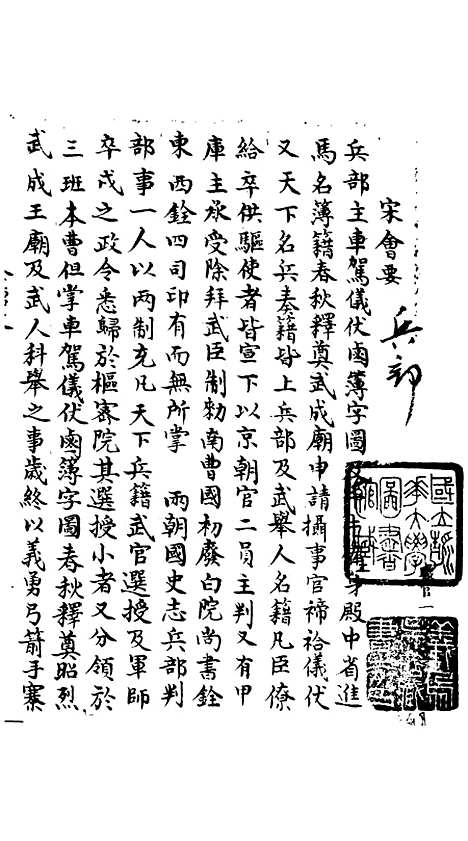 宋會要
兵部
兵部主車駕儀仗鹵簿字圖 身殿中省進
馬名簿籍春秋釋奠武成廟申請攝事官禘祫儀仗
又天下名兵奏籍皆上兵部及武舉人名籍凡臣僚
給卒供驅使者皆宣下以京朝官二員主判又有甲
庫主承受除拜武臣制勑南曹國初廢白院尚書銓
東西銓四司印有而無所掌 兩朝國史志兵部判
部事一人以兩制充凡天下兵籍武官選授及軍師
卒戍之政令悉歸於樞密院其選授小者又分領於
三班本曹但掌車駕儀仗鹵簿字圖春秋釋奠昭烈
武成王廟及武人科舉之事歲終以義勇弓箭手寨